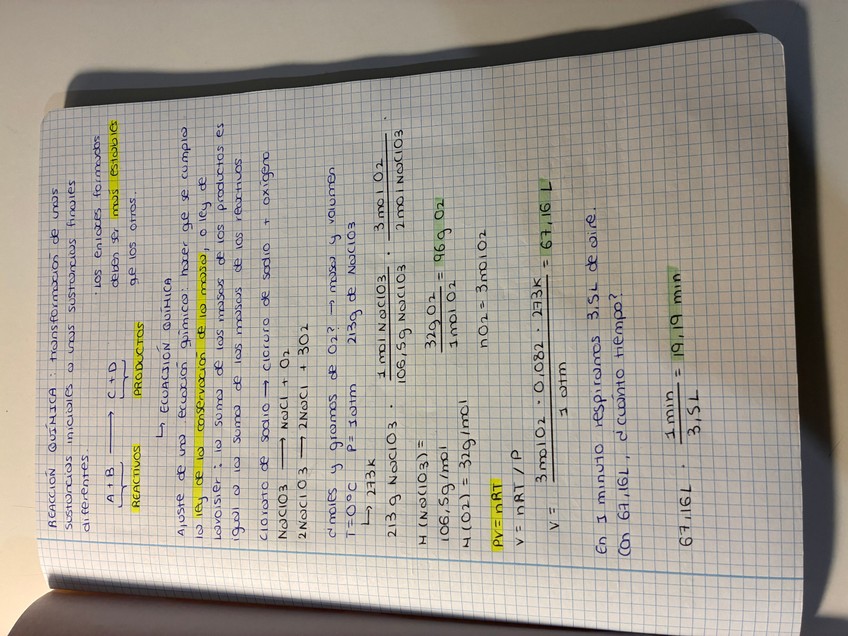 REACCIÓN QUÍMICA: transformación de unas
sustancias iniciales a unas sustancias finales
diferentes
· Los enlaces formados
deben ser mas estables
qe los otros.
A + B → C + D
REACTIVOS PRODUCTOS
↳ ECUACIÓN QUÍMICA
Ajuste de una ecuación química: hacer qe se cumpla
la ley de la conservación de la masa, o ley de
Lavoisier: la suma de las masas de los productos es
igual a la suma de las masas de los reactivos
Clorato de sodio → cloruro de sodio + oxígeno
NaClO3 → NaCl + O2
2NaClO3 → 2NaCl + 3O2
¿moles y gramos de O2? → masa y volumen
T = 0°C P = 1 atm 213g de NaClO3
↳ 273K
213 g NaClO3 · 1 mol NaClO3 / 106,5 g NaClO3 · 3 mol O2 / 2 mol NaClO3 ·
M (NaClO3) =
106,5 g/mol
32g O2 / 1 mol O2 = 96g O2
M (O2) = 32g/mol
nO2 = 3 mol O2
PV = nRT
V = nRT / P
V = 3 mol O2 · 0,082 · 273K / 1 atm = 67,16 L
En 1 minuto respiramos 3,5L de aire.
Con 67,16L, ¿cuanto tiempo?
67,16L · 1 min / 3,5L = 19,19 min